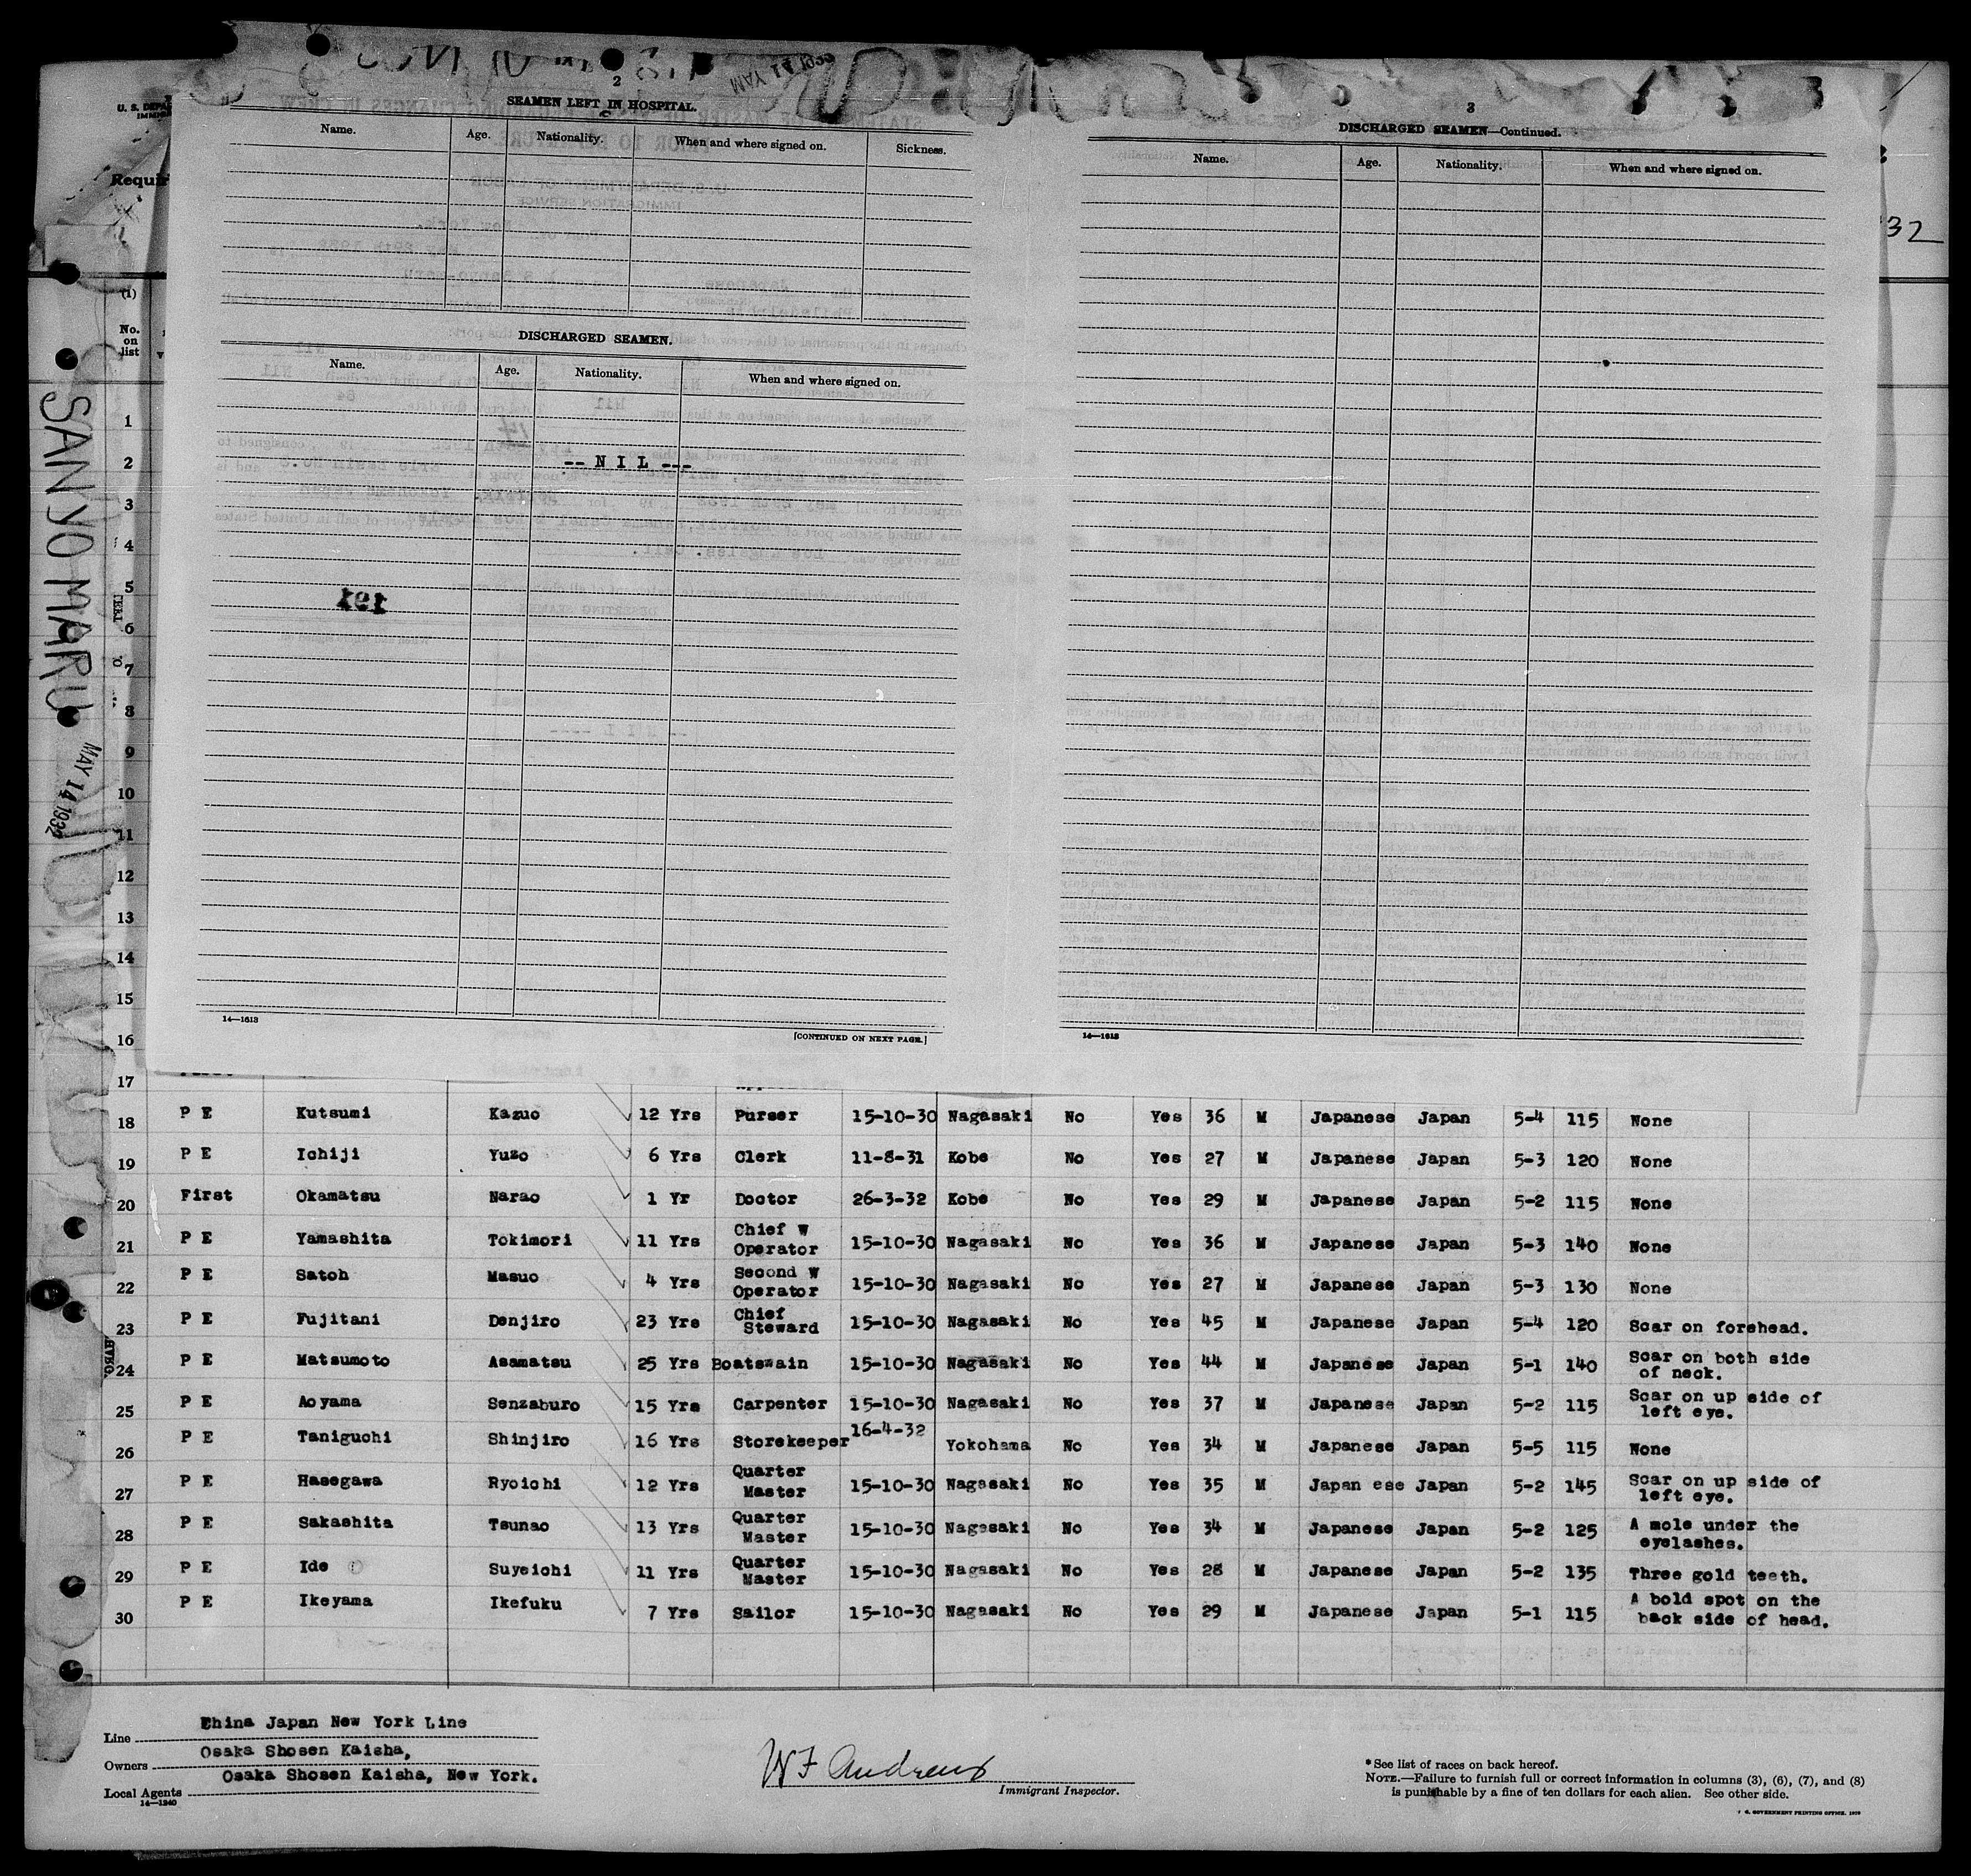 2
SEAMEN LEFT IN HOSPITAL.
Name. Age. Nationality. When and where signed on. Sickness.
DISCHARGED SEAMEN.
Name. Age. Nationality. When and where signed on.
-- N I L ---
191
14—1613
[CONTINUED ON NEXT PAGE.]
3
DISCHARGED SEAMEN—Continued.
Name. Age. Nationality. When and where signed on.
14—1613
32
(1)
No.
on
list
SANYO MARU
MAY 14 1932
1
2
3
4
5
6
7
8
9
10
11
12
13
14
15
16
17
18 P E Kutsumi Kazuo 12 Yrs Purser 15-10-30 Nagasaki No Yes 36 M Japanese Japan 5-4 115 None
19 P E Ichiji Yuzo 6 Yrs Clerk 11-8-31 Kobe No Yes 27 M Japanese Japan 5-3 120 None
20 First Okamatsu Narao 1 Yr Doctor 26-3-32 Kobe No Yes 29 M Japanese Japan 5-2 115 None
21 P E Yamashita Tokimori 11 Yrs Chief W Operator 15-10-30 Nagasaki No Yes 36 M Japanese Japan 5-3 140 None
22 P E Satoh Masuo 4 Yrs Second W Operator 15-10-30 Nagasaki No Yes 27 M Japanese Japan 5-3 130 None
23 P E Fujitani Denjiro 23 Yrs Chief Steward 15-10-30 Nagasaki No Yes 45 M Japanese Japan 5-4 120 Scar on forehead.
24 P E Matsumoto Asamatsu 25 Yrs Boatswain 15-10-30 Nagasaki No Yes 44 M Japanese Japan 5-1 140 Scar on both side of neck.
25 P E Aoyama Senzaburo 15 Yrs Carpenter 15-10-30 Nagasaki No Yes 37 M Japanese Japan 5-2 115 Scar on up side of left eye.
26 P E Taniguchi Shinjiro 16 Yrs Storekeeper 16-4-32 Yokohama No Yes 34 M Japanese Japan 5-5 115 None
27 P E Hasegawa Ryoichi 12 Yrs Quarter Master 15-10-30 Nagasaki No Yes 35 M Japan ese Japan 5-2 145 Scar on up side of left eye.
28 P E Sakashita Tsunao 13 Yrs Quarter Master 15-10-30 Nagasaki No Yes 34 M Japanese Japan 5-2 125 A mole under the eyelashes.
29 P E Ide Suyeichi 11 Yrs Quarter Master 15-10-30 Nagasaki No Yes 28 M Japanese Japan 5-2 135 Three gold teeth.
30 P E Ikeyama Ikefuku 7 Yrs Sailor 15-10-30 Nagasaki No Yes 29 M Japanese Japan 5-1 115 A bold spot on the back side of head.
Line China Japan New York Line
Owners Osaka Shosen Kaisha,
Local Agents Osaka Shosen Kaisha, New York.
14—1240
W F Andrews
Immigrant Inspector.
* See list of races on back hereof.
NOTE.—Failure to furnish full or correct information in columns (3), (6), (7), and (8)
is punishable by a fine of ten dollars for each alien. See other side.
GOVERNMENT PRINTING OFFICE.